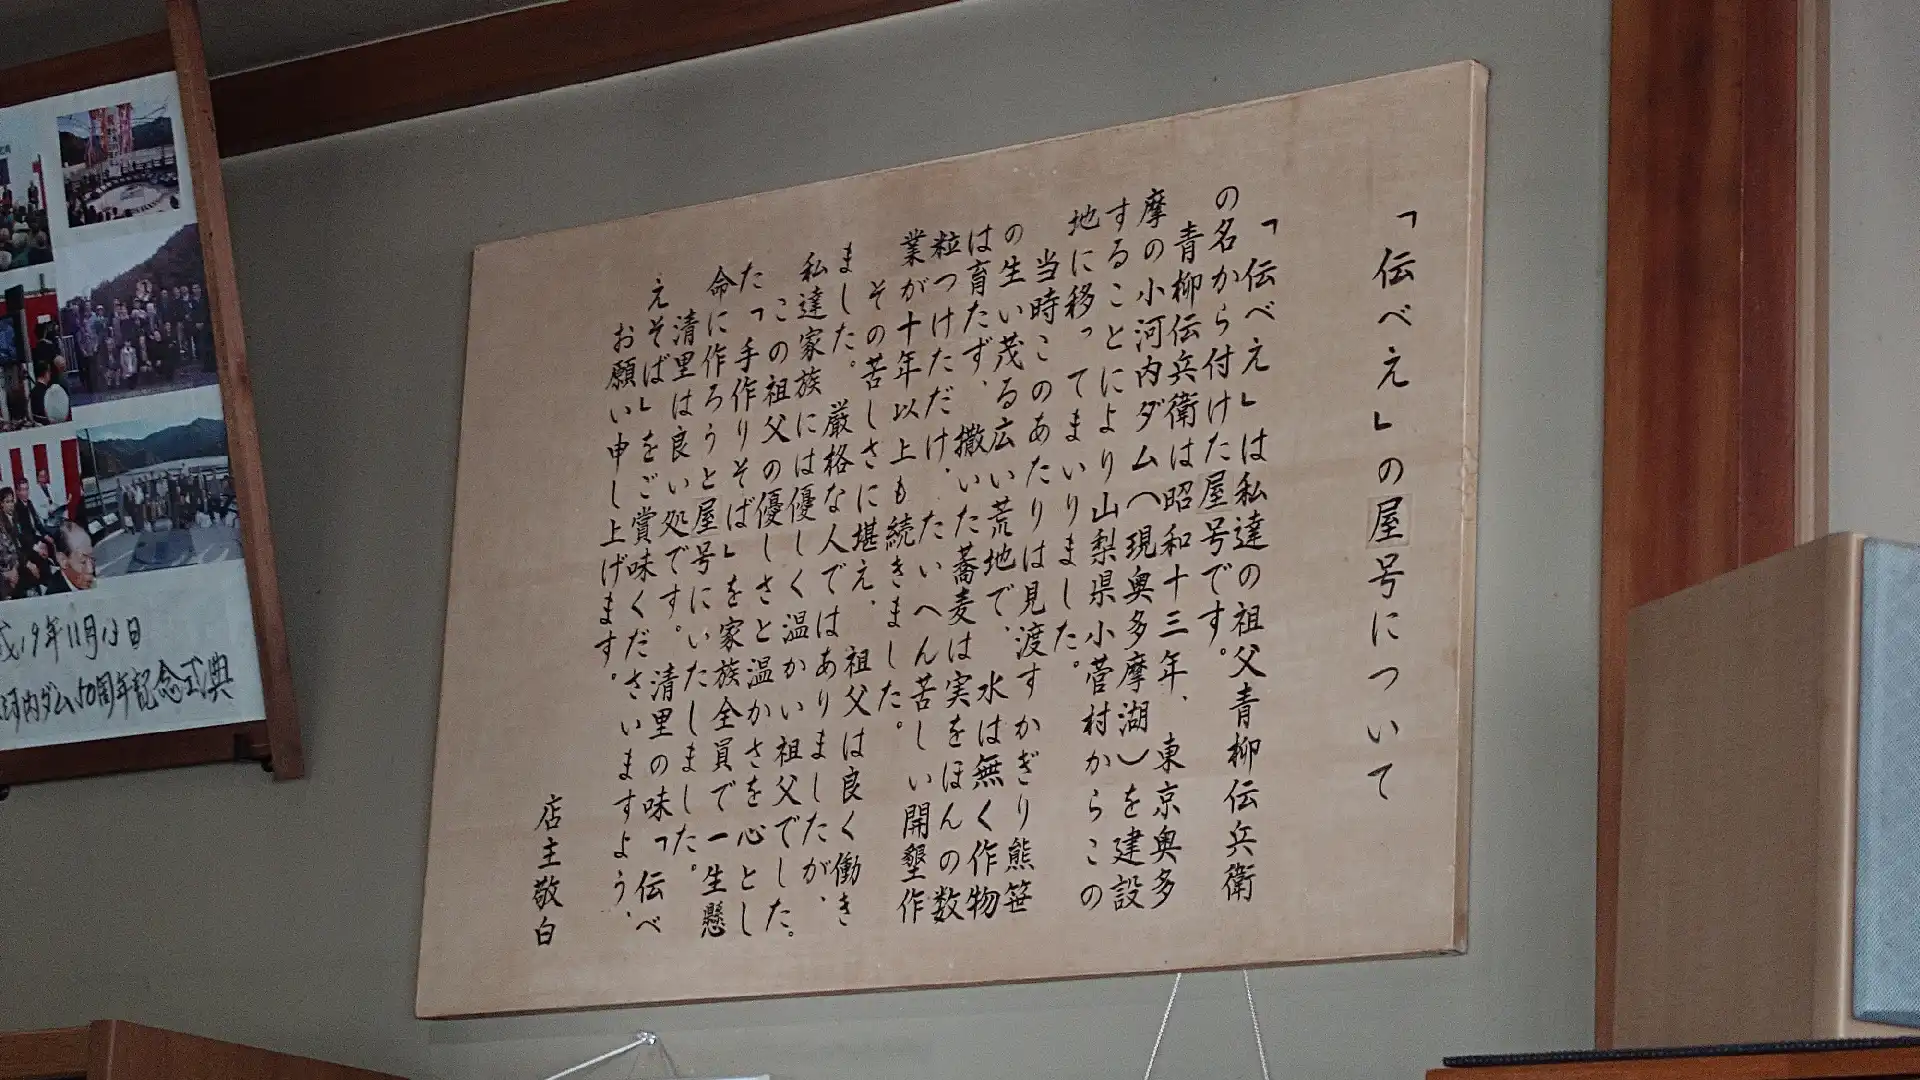 「伝べえ」の屋号について
「伝べえ」は私達の祖父青柳伝兵衛
の名から付けた屋号です。
青柳伝兵衛は昭和十三年、東京奥多
摩の小河内ダム(現奥多摩湖)を建設
することにより山梨県小菅村からこの
地に移ってまいりました。
当時このあたりは見渡すかぎり熊笹
の生い茂る広い荒地で、水は無く作物
は育たず、撒いた蕎麦は実をほんの数
粒つけただけ、たいへん苦しい開墾作
業が十年以上も続きました。
その苦しさに堪え、祖父は良く働き
ました。厳格な人ではありましたが、
私達家族には優しく温かい祖父でした。
この祖父の優しさと温かさを心とし
た「手作りそば」を家族全員で一生懸
命に作ろうと屋号にいたしました。
清里は良い処です。清里の味「伝べ
えそば」をご賞味くださいますよう、
お願い申し上げます。
店主敬白
19年11月13日
河内ダム50周年記念式典